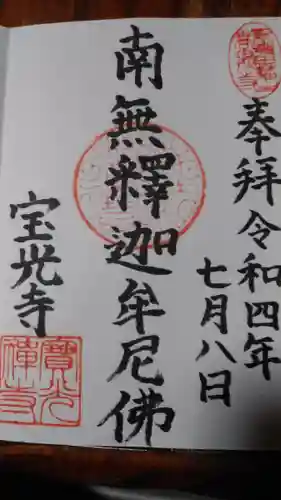 奉拝令和四年
七月八日
南無釋迦牟尼佛
宝光寺